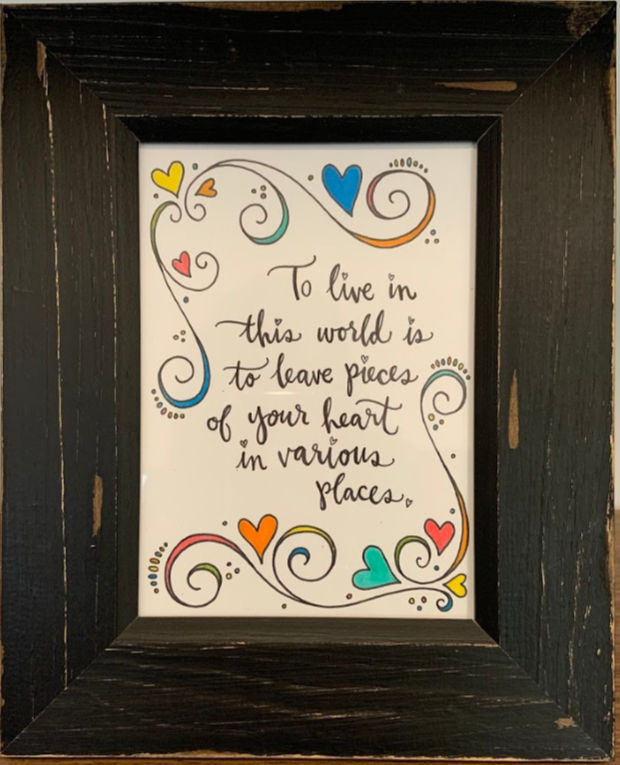 To live in
this world is
to leave pieces
of your heart
in various
places.